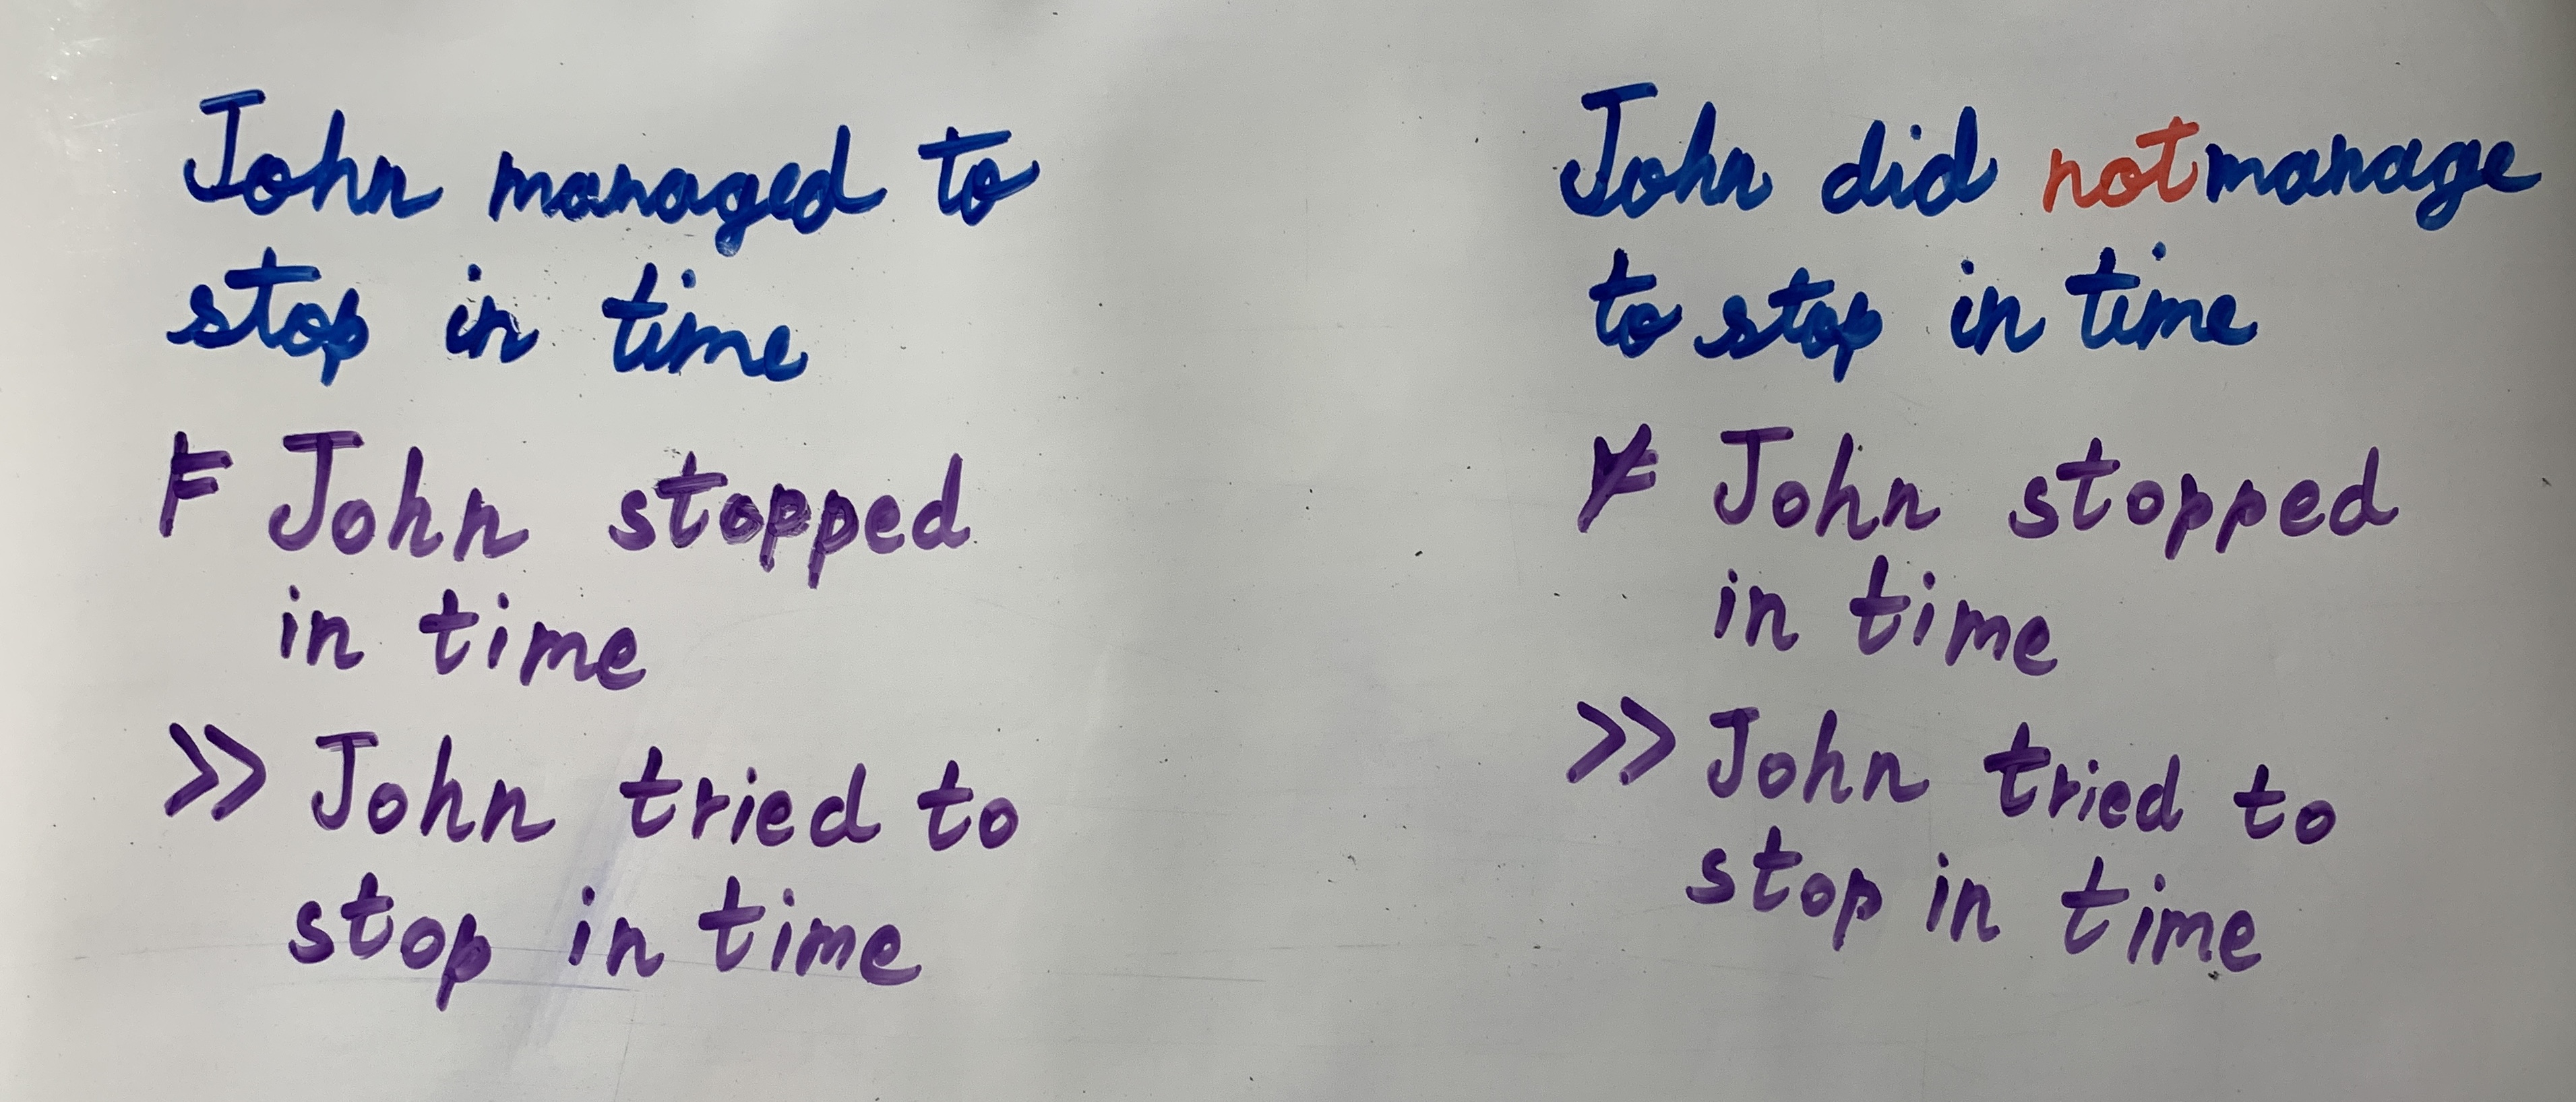 John managed to
stop in time
⊨ John stopped
in time
>> John tried to
stop in time
John did not manage
to stop in time
⊭ John stopped
in time
>> John tried to
stop in time